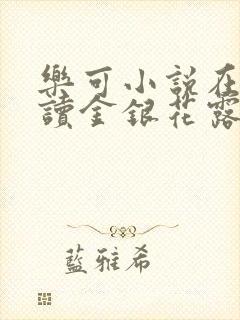 樂可小說在
讀金銀花露
藍雅希